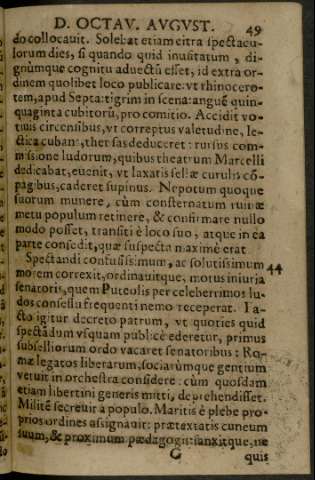 D. OCTAV. AVGVST. 49
do collocauit. Solebat etiam citra spectacu-
lorum dies, si quando quid inusitatum, di-
gnúmque cognitu aduectū esset, id extra or-
dinem quolibet loco publicare: vt rhinocero-
tem, apud Septa: tigrim in scena: anguē quin-
quaginta cubitorū, pro comitio. Accidit vo-
tiuis circensibus, vt correptus valetudine, le-
ctica cubans, thensas deduceret: rursus com-
missione ludorum, quibus theatrum Marcelli
dedicabat, euenit, vt laxatis sellæ curulis cō-
pagibus, caderet supinus. Nepotum quoque
suorum munere, cùm consternatum ruinæ
metu populum retinere, & confirmare nullo
modo posset, transiit è loco suo, atque in ea
parte consedit, quæ suspecta maximè erat
Spectandi confusissimum, ac solutissimum 44
morem correxit, ordinauitque, motus iniuria
senatoris, quem Puteolis per celeberrimos lu-
dos consessu frequenti nemo receperat. Fa-
cto igitur decreto patrum, vt quoties quid
spectādum vsquam publicè ederetur, primus
subselliorum ordo vacaret senatoribus: Ro-
mæ legatos liberarum, sociarúmque gentium
vetuit in orchestra considere: cùm quosdam
etiam libertini generis mitti, deprehendisset.
Militē secreuit à populo. Maritis è plebe pro-
prios ordines assignauit: prætextatis cuneum
suum, & proximum pædagogis: sanxitque, ne
G quis